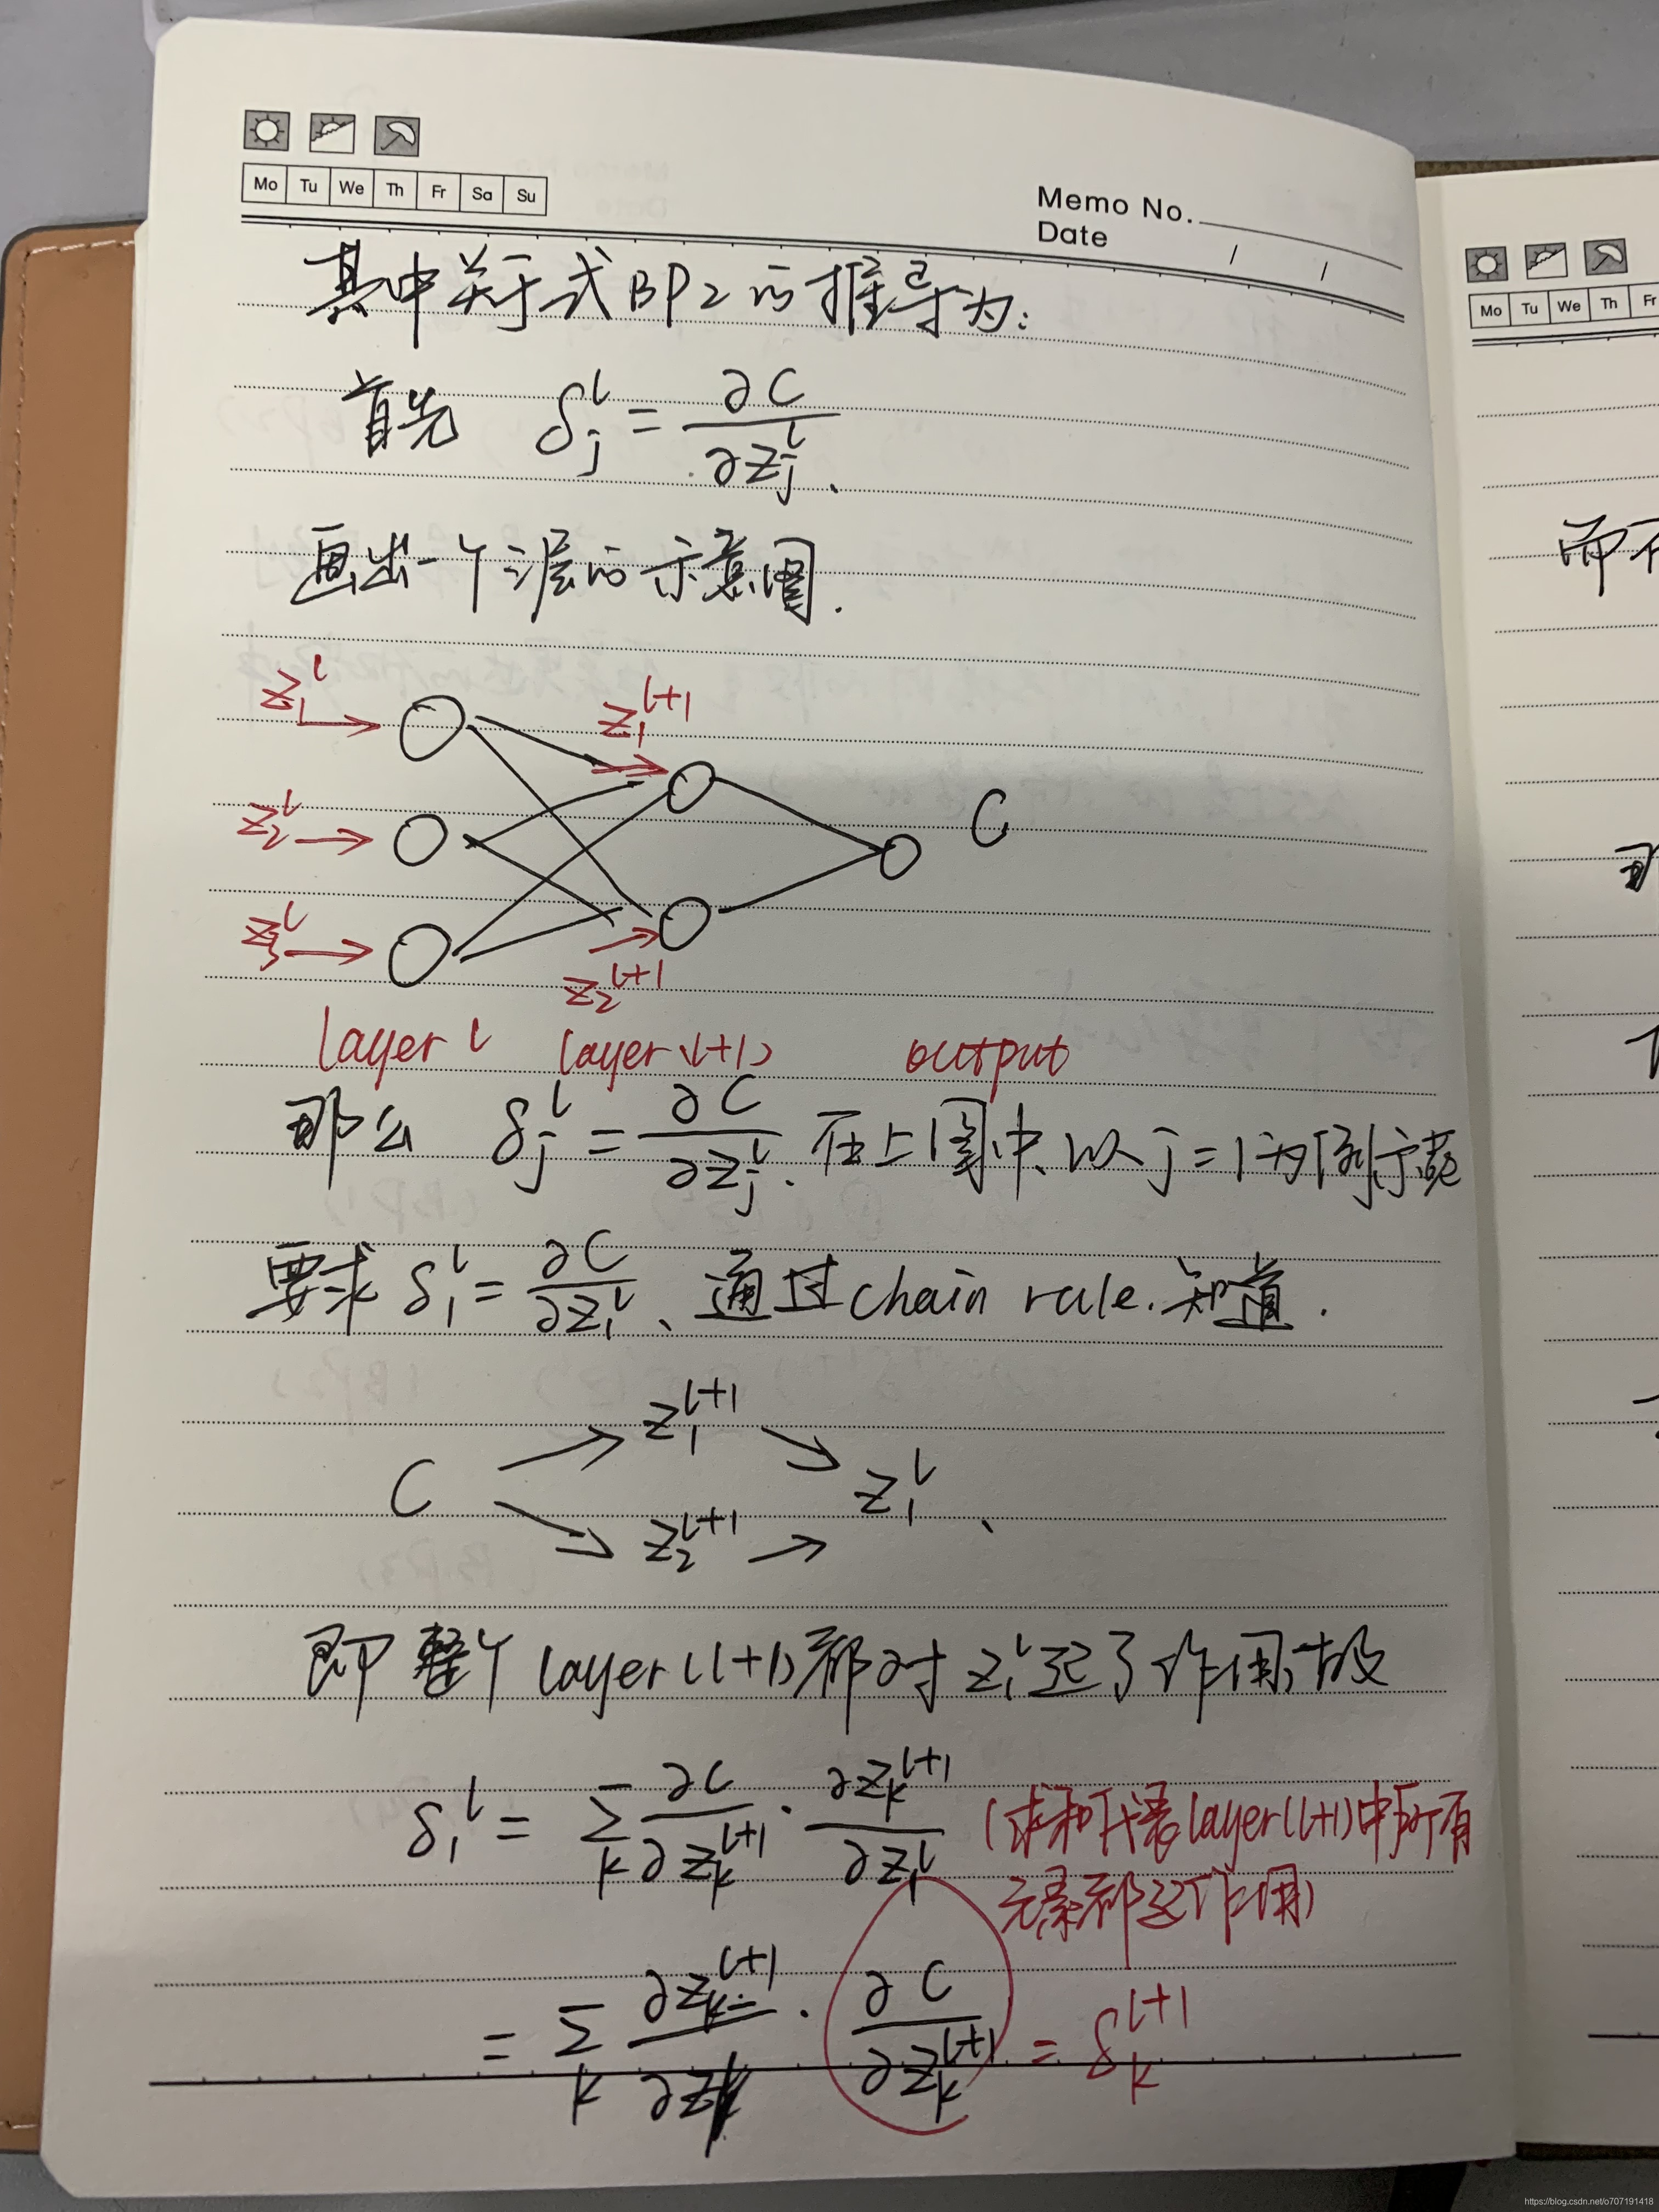 Mo Tu We Th Fr Sa Su
Memo No.
Date / /
其中关于式BP2的推导为:
首先 δ_j^l = ∂C/∂z_j^l、
画出一个三层的示意图.
z_1^l → z_1^{l+1} →
z_2^l → C
z_3^l → z_2^{l+1} →
layer l layer(l+1) output
那么 δ_j^l = ∂C/∂z_j^l. 在上图中、以j=1为例
要求 δ_1^l = ∂C/∂z_1^l、通过chain rule.知道.
z_1^{l+1}
C z_1^l、
z_2^{l+1}
即整个layer(l+1)都对z_1^l起了作用,故
δ_1^l = Σ_k ∂C/∂z_k^{l+1} · ∂z_k^{l+1}/∂z_1^l (求和代表layer(l+1)中所有
元素都起作用)
= Σ_k ∂z_k^{l+1}/∂z · ∂C/∂z_k^{l+1} = δ_k^{l+1}
Mo Tu We Th Fr
https://blog.csdn.net/o707191418